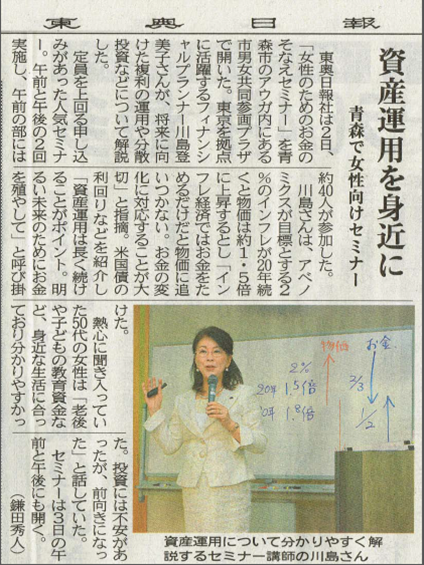 東奥日報
資産運用を身近に
青森で女性向けセミナー
東奥日報社は2日、
「女性のためのお金の
そなえセミナー」を青
森市のアウガ内にある
市男女共同参画プラザ
で開いた。東京を拠点
に活躍するフィナンシ
ャルプランナー川島登
美子さんが、将来に向
けた複利の運用や分散
投資などについて解説
した。
定員を上回る申し込
みがあった人気セミナ
ー。午前と午後の2回
実施し、午前の部には
約40人が参加した。
川島さんは、アベノ
ミクスが目標とする2
%のインフレが20年続
くと物価は約1・5倍
に上昇するとし「イン
フレ経済ではお金をた
めるだけだと物価に追
いつかない。お金の変
化に対応することが大
切」と指摘。米国債の
利回りなどを紹介し
「資産運用は長く続け
ることがポイント。明
るい未来のためにお金
を殖やして」と呼び掛
けた。
熱心に聞き入ってい
た50代の女性は「老後
や子どもの教育資金な
ど、身近な生活に合っ
ており分かりやすかっ
た。投資には不安があ
ったが、前向きになっ
た」と話していた。
セミナーは3日の午
前と午後にも開く。
（鎌田秀人）
物価
お金
2%
20年 1.5倍
1.8倍
2/3
1/2
資産運用について分かりやすく解
説するセミナー講師の川島さん